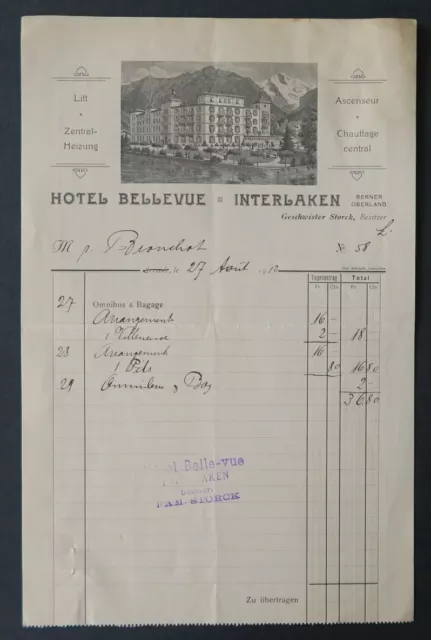 Lift
Zentral-
Heizung
Ascenseur
Chauffage
central
HOTEL BELLEVUE INTERLAKEN BERNER
OBERLAND
Geschwister Storck, Besitzer
M № 58
le 27 Août 191
Tagesbetrag Total
Fr. Cts. Fr. Cts.
27 Omnibus & Bagage
Arrangement 16 –
1 2 – 18
28 Arrangement 16 –
1 Pils 80 16 80
29 Omnibus & Bag 2 –
36 80
Hotel Belle-vue
INTERLAKEN
FAM. STORCK
Zu übertragen